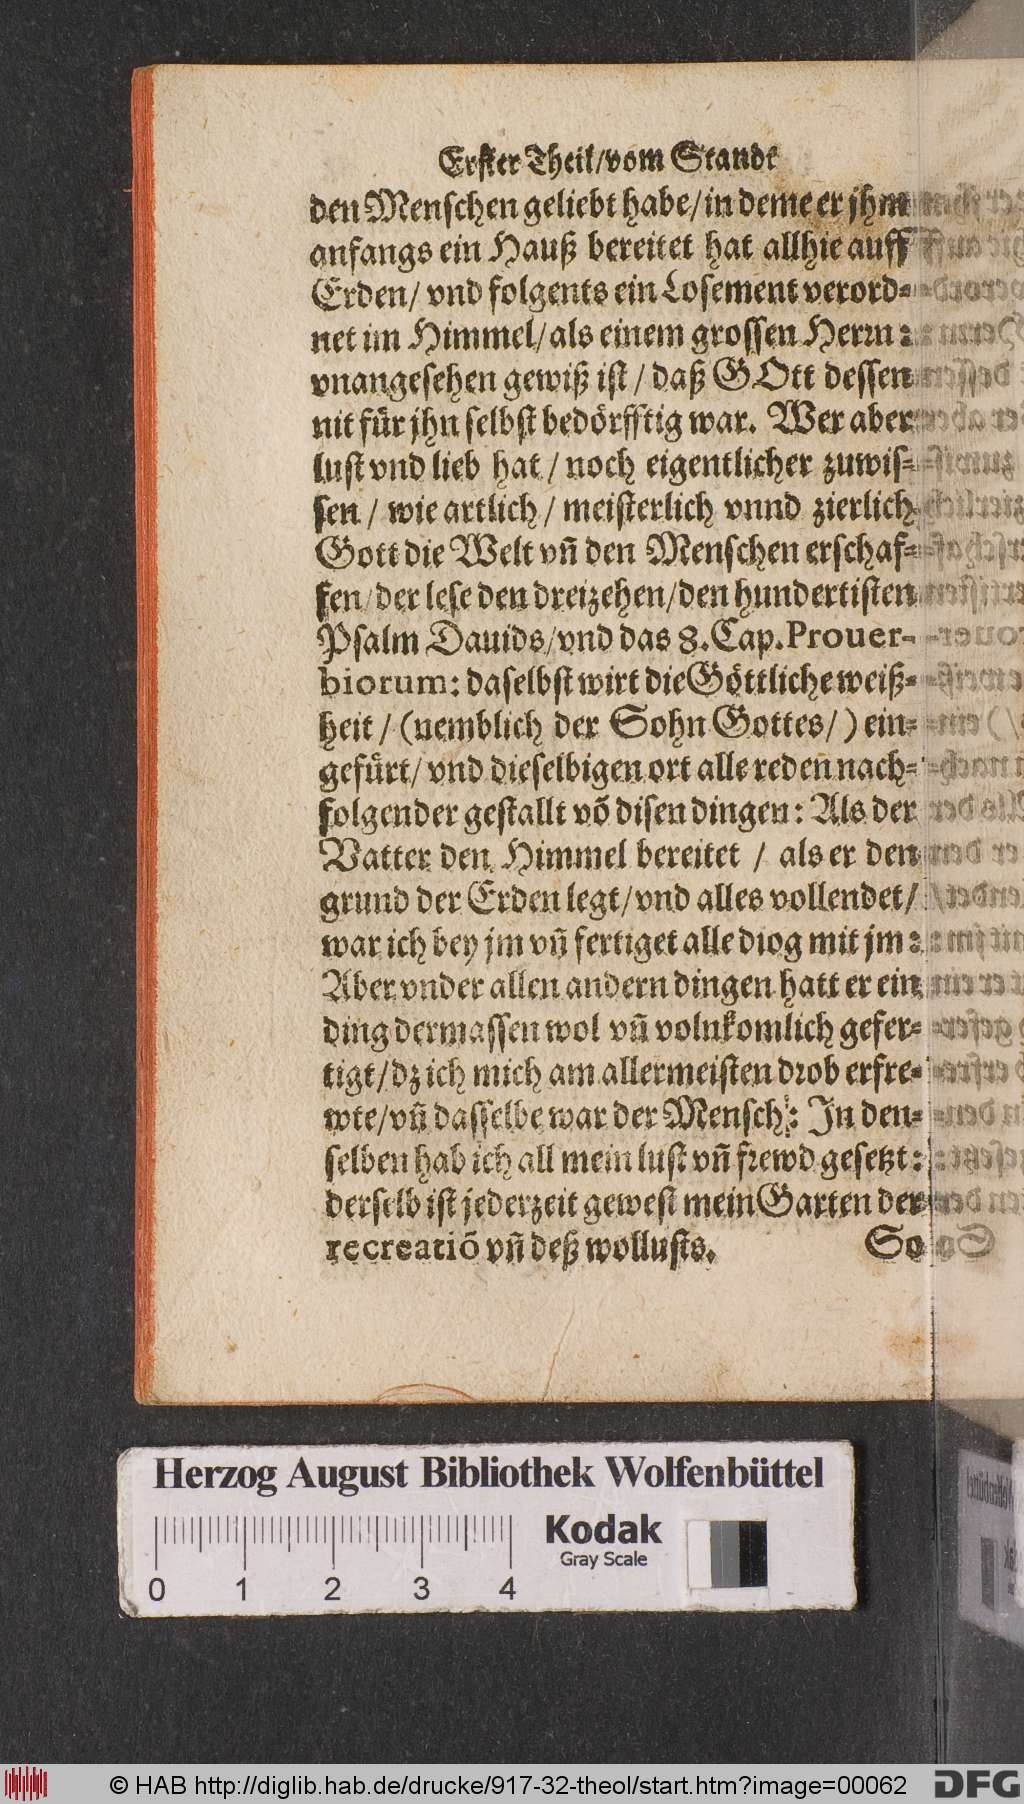 Erster Theil/vom Standt
den Menschen geliebt habe/in deme er jhm
anfangs ein Hauß bereitet hat allhie auff
Erden/ vnd folgents ein Losement verord-
net im Himmel/als einem grossen Herrn:
vnangesehen gewiß ist / daß GOtt dessen
nit für jhn selbst bedörfftig war. Wer aber
lust vnd lieb hat / noch eigentlicher zuwis-
sen / wie artlich / meisterlich vnnd zierlich
Gott die Welt vñ den Menschen erschaf-
fen/der lese den dreizehen/den hundertisten
Psalm Dauids/vnd das 8.Cap.Prouer-
biorum: daselbst wirt die Göttliche weiß-
heit / (nemblich der Sohn Gottes/) ein-
gefürt/ vnd dieselbigen ort alle reden nach-
folgender gestallt võ disen dingen: Als der
Vatter den Himmel bereitet / als er den
grund der Erden legt/vnd alles vollendet/
war ich bey jm vñ fertiget alle diog mit jm:
Aber vnder allen andern dingen hatt er ein
ding dermassen wol vñ volnkomlich gefer-
tigt/dz ich mich am allermeisten drob erfre-
wte/vñ dasselbe war der Mensch: In den-
selben hab ich all mein lust vñ frewd gesetzt:
derselb ist jederzeit gewest mein Garten der
recreatiõ vñ deß wollusts.
So
Herzog August Bibliothek Wolfenbüttel
Kodak
Gray Scale
0 1 2 3 4
© HAB http://diglib.hab.de/drucke/917-32-theol/start.htm?image=00062
DFG